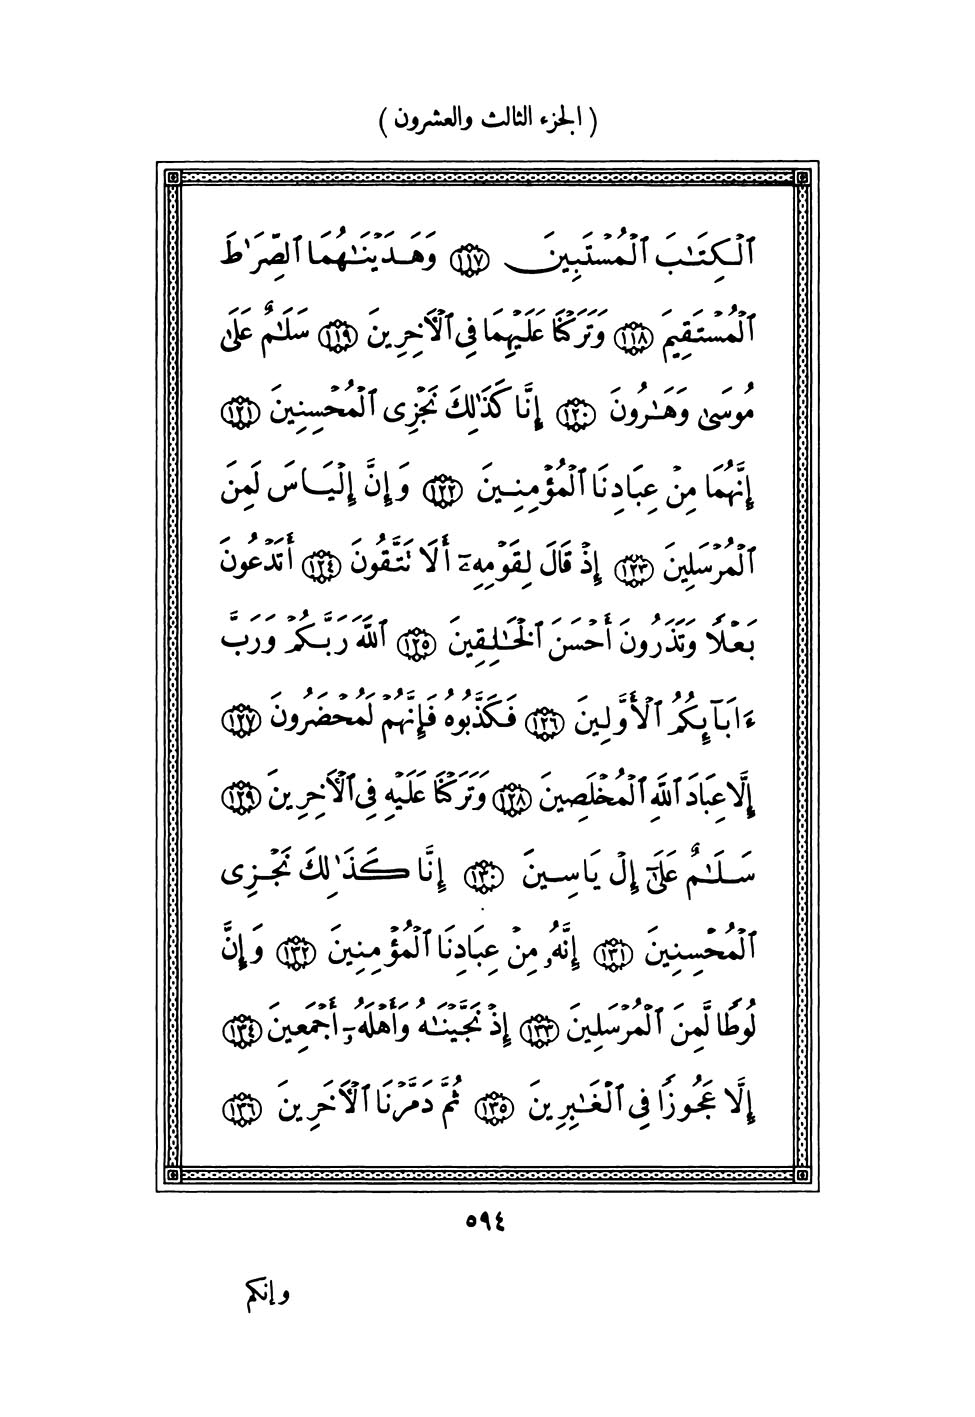 ( الجزء الثالث والعشرون )
ٱلْكِتَٰبَ ٱلْمُسْتَبِينَ ١١٧ وَهَدَيْنَٰهُمَا ٱلصِّرَٰطَ
ٱلْمُسْتَقِيمَ ١١٨ وَتَرَكْنَا عَلَيْهِمَا فِى ٱلْأَخِرِينَ ١١٩ سَلَٰمٌ عَلَىٰ
مُوسَىٰ وَهَٰرُونَ ١٢٠ إِنَّا كَذَٰلِكَ نَجْزِى ٱلْمُحْسِنِينَ ١٢١
إِنَّهُمَا مِنْ عِبَادِنَا ٱلْمُؤْمِنِينَ ١٢٢ وَإِنَّ إِلْيَاسَ لَمِنَ
ٱلْمُرْسَلِينَ ١٢٣ إِذْ قَالَ لِقَوْمِهِۦٓ أَلَا تَتَّقُونَ ١٢٤ أَتَدْعُونَ
بَعْلًا وَتَذَرُونَ أَحْسَنَ ٱلْخَٰلِقِينَ ١٢٥ ٱللَّهَ رَبَّكُمْ وَرَبَّ
ءَابَآئِكُمُ ٱلْأَوَّلِينَ ١٢٦ فَكَذَّبُوهُ فَإِنَّهُمْ لَمُحْضَرُونَ ١٢٧
إِلَّا عِبَادَ ٱللَّهِ ٱلْمُخْلَصِينَ ١٢٨ وَتَرَكْنَا عَلَيْهِ فِى ٱلْأَخِرِينَ ١٢٩
سَلَٰمٌ عَلَىٰٓ إِلْ يَاسِينَ ١٣٠ إِنَّا كَذَٰلِكَ نَجْزِى
ٱلْمُحْسِنِينَ ١٣١ إِنَّهُۥ مِنْ عِبَادِنَا ٱلْمُؤْمِنِينَ ١٣٢ وَإِنَّ
لُوطًا لَّمِنَ ٱلْمُرْسَلِينَ ١٣٣ إِذْ نَجَّيْنَٰهُ وَأَهْلَهُۥٓ أَجْمَعِينَ ١٣٤
إِلَّا عَجُوزًا فِى ٱلْغَٰبِرِينَ ١٣٥ ثُمَّ دَمَّرْنَا ٱلْأَخَرِينَ ١٣٦
٥٩٤
وإنكم